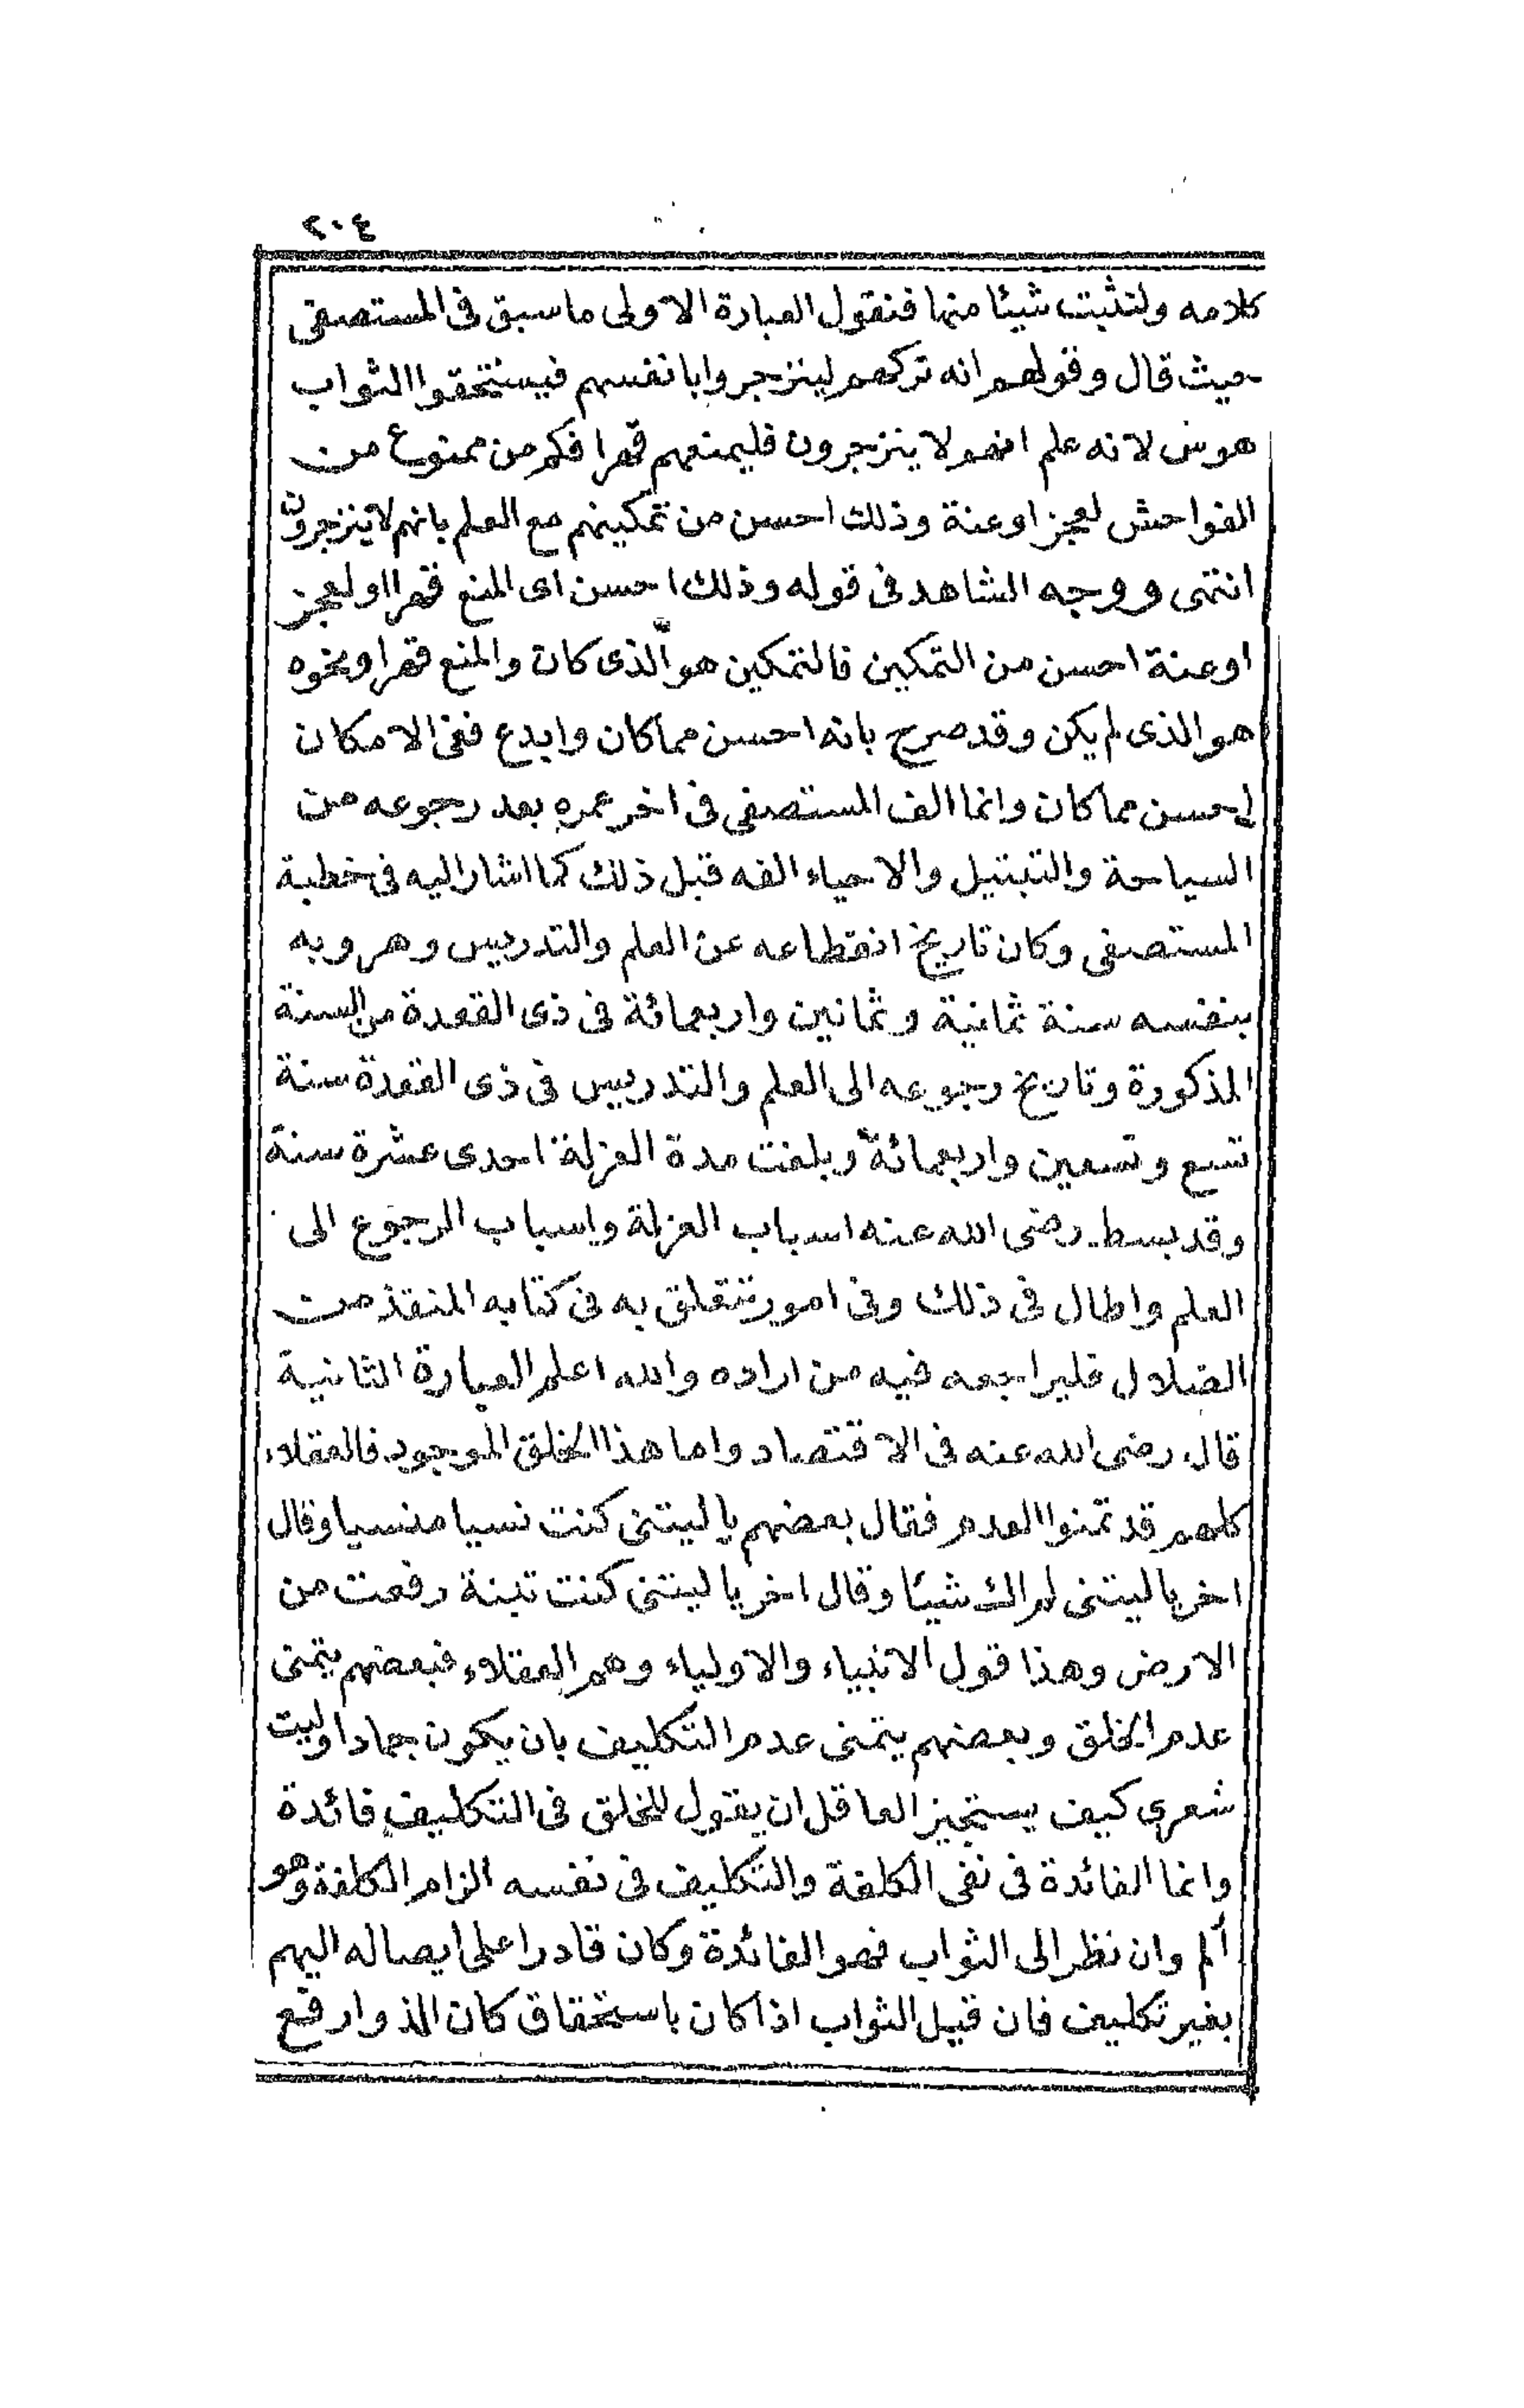 ٢٠٤
كلامه ولنثبت شيئا منها فنقول العبارة الاولى ما سبق فى المستصفى
حيث قال وقولهم انه تركهم لينزجروا بانفسهم فيستحقوا الثواب
هوس لانه علم انهم لا ينزجرون فليمنعهم قهرا فكم من ممنوع من
الفواحش لعجز او عنة وذلك احسن من تمكينهم مع العلم بانهم لا ينزجرون
انتهى ووجه الشاهد فى قوله وذلك احسن اى المنع قهرا او لعجز
او عنة احسن من التمكين فالتمكين هو الذى كان والمنع قهرا ونحوه
هو الذى لم يكن وقد صرح بانه احسن مما كان وابدع ففى الامكان
احسن مما كان وانما الف المستصفى فى اخر عمره بعد رجوعه من
السياحة والتبتيل والاحياء الفه قبل ذلك كما اشار اليه فى خطبة
المستصفى وكان تاريخ انقطاعه عن العلم والتدريس وهروبه
بنفسه سنة ثمانية وثمانين واربعمائة فى ذى القعدة من السنة
المذكورة وتاريخ رجوعه الى العلم والتدريس فى ذى القعدة سنة
تسع وتسعين واربعمائة وبلغت مدة العزلة احدى عشرة سنة
وقد بسط رضى الله عنه اسباب العزلة واسباب الرجوع الى
العلم واطال فى ذلك وفى امور تتعلق به فى كتابه المنقذ من
الضلال فليراجعه فيه من اراده والله اعلم العبارة الثانية
قال رضى الله عنه فى الاقتصاد واما هذا الخلق الموجود فالعقلاء
كلهم قد تمنوا العدم فقال بعضهم يا ليتنى كنت نسيا منسيا وقال
اخر يا ليتنى لم اك شيئا وقال اخر يا ليتنى كنت تبنة رفعت من
الارض وهذا قول الانبياء والاولياء وهم العقلاء فبعضهم يتمنى
عدم الخلق وبعضهم يتمنى عدم التكليف بان يكون جمادا وليت
شعرى كيف يستجيز العاقل ان يقول للخلق فى التكليف فائدة
وانما الفائدة فى نفى الكلفة والتكليف فى نفسه الزام الكلفة وهو
ألم وان نظر الى الثواب فهو الفائدة وكان قادرا على ايصاله اليهم
بغير تكليف فان قيل الثواب اذا كان باستحقاق كان الذ وارفع